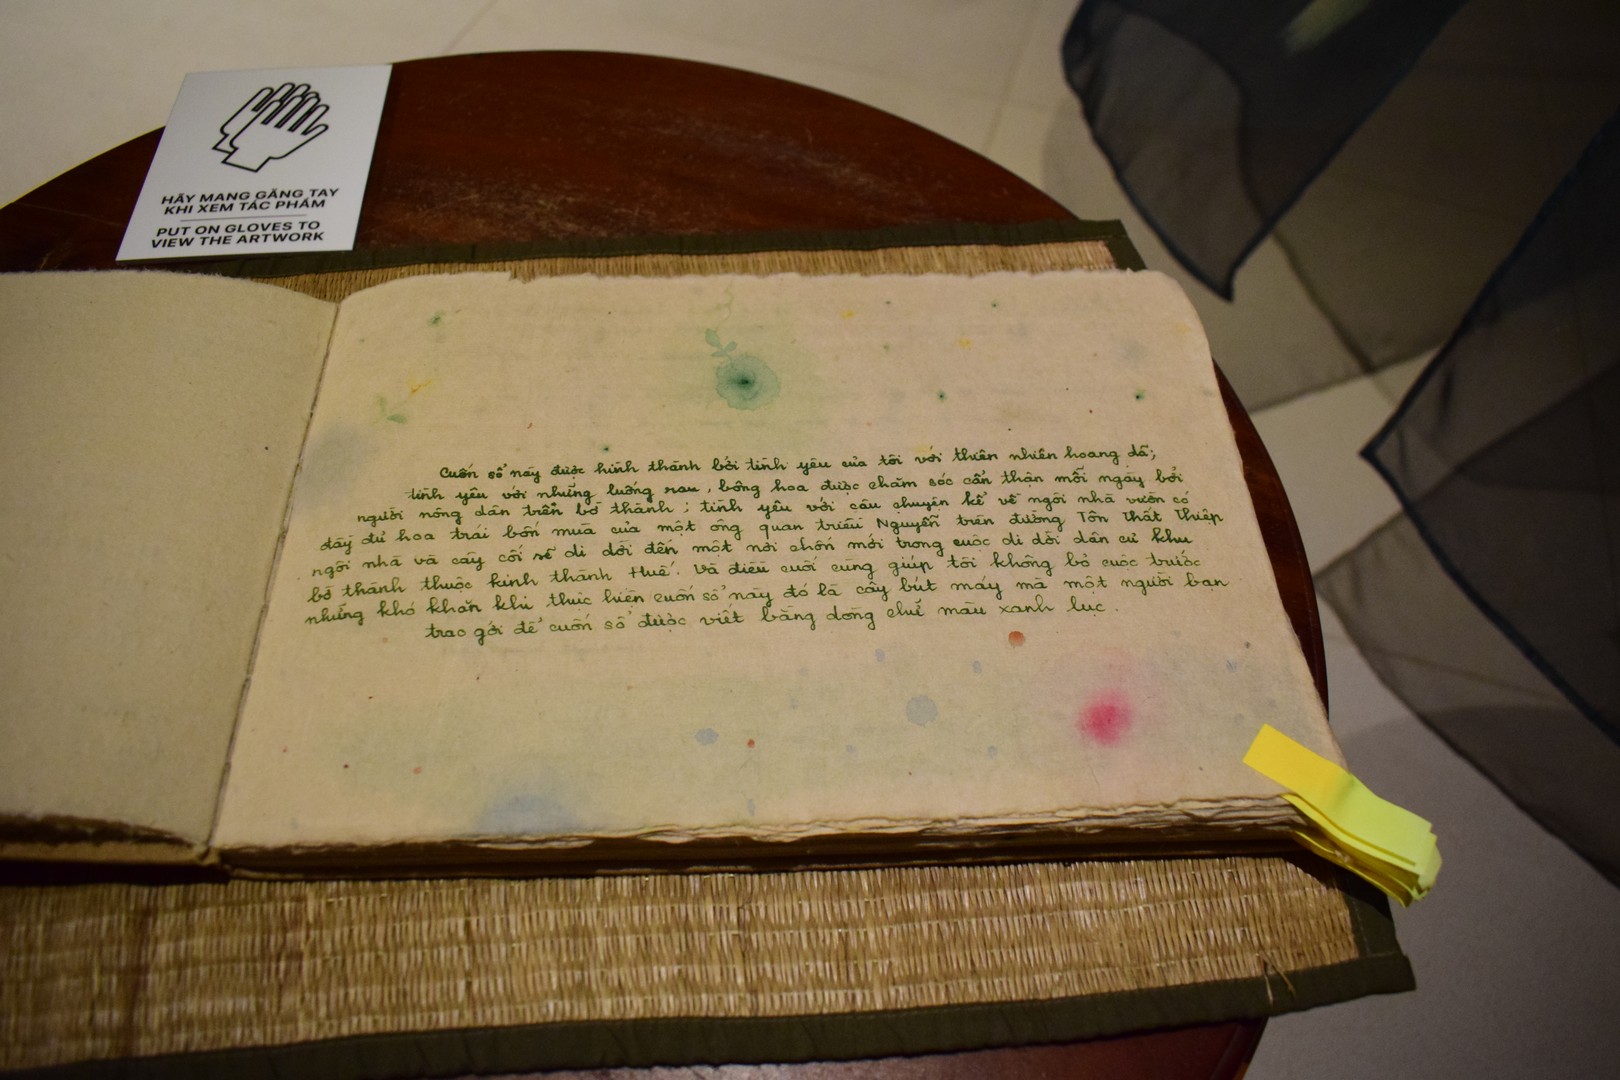 HÃY MANG GĂNG TAY
KHI XEM TÁC PHẨM
PUT ON GLOVES TO
VIEW THE ARTWORK
Cuốn sổ này được hình thành bởi tình yêu của tôi với thiên nhiên hoang dã;
tình yêu với những luống rau, bông hoa được chăm sóc cẩn thận mỗi ngày bởi
người nông dân trên bờ thành; tình yêu với câu chuyện kể về ngôi nhà vườn có
đầy đủ hoa trái bốn mùa của một ông quan triều Nguyễn trên đường Tôn Thất Thiệp
ngôi nhà và cây cối sẽ di dời đến một nơi chốn mới trong cuộc di dời dân cư khu
bờ thành thuộc kinh thành Huế. Và điều cuối cùng giúp tôi không bỏ cuộc trước
những khó khăn khi thực hiện cuốn sổ này đó là cây bút máy mà một người bạn
trao gởi để cuốn sổ được viết bằng dòng chữ màu xanh lục.